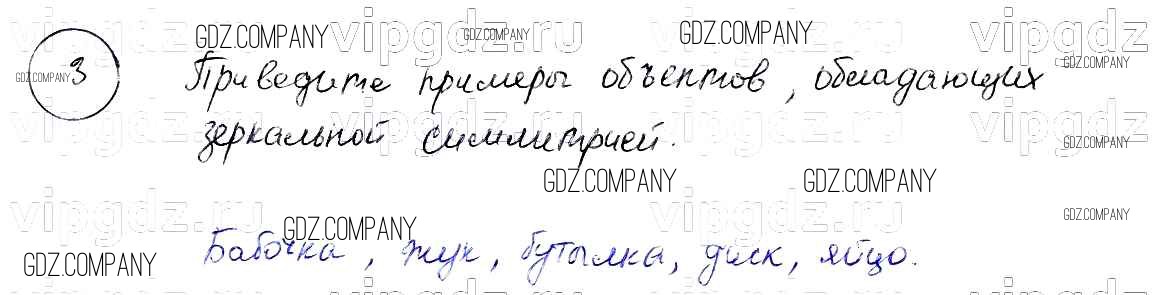 vipgdz.ru vipgdz.ru vipgdz.ru vipgdz.ru
GDZ.COMPANY GDZ.COMPANY GDZ.COMPANY
GDZ.COMPANY
3 GDZ.COMPANY
Приведите примеры объектов, обладающих
зеркальной симметрией.
vipgdz.ru vipgdz.ru vipgdz.ru vipgdz.ru
GDZ.COMPANY
GDZ.COMPANY GDZ.COMPANY
vipgdz.ru vipgdz.ru
GDZ.COMPANY GDZ.COMPANY
Бабочка, жук, бутылка, диск, яйцо.
GDZ.COMPANY